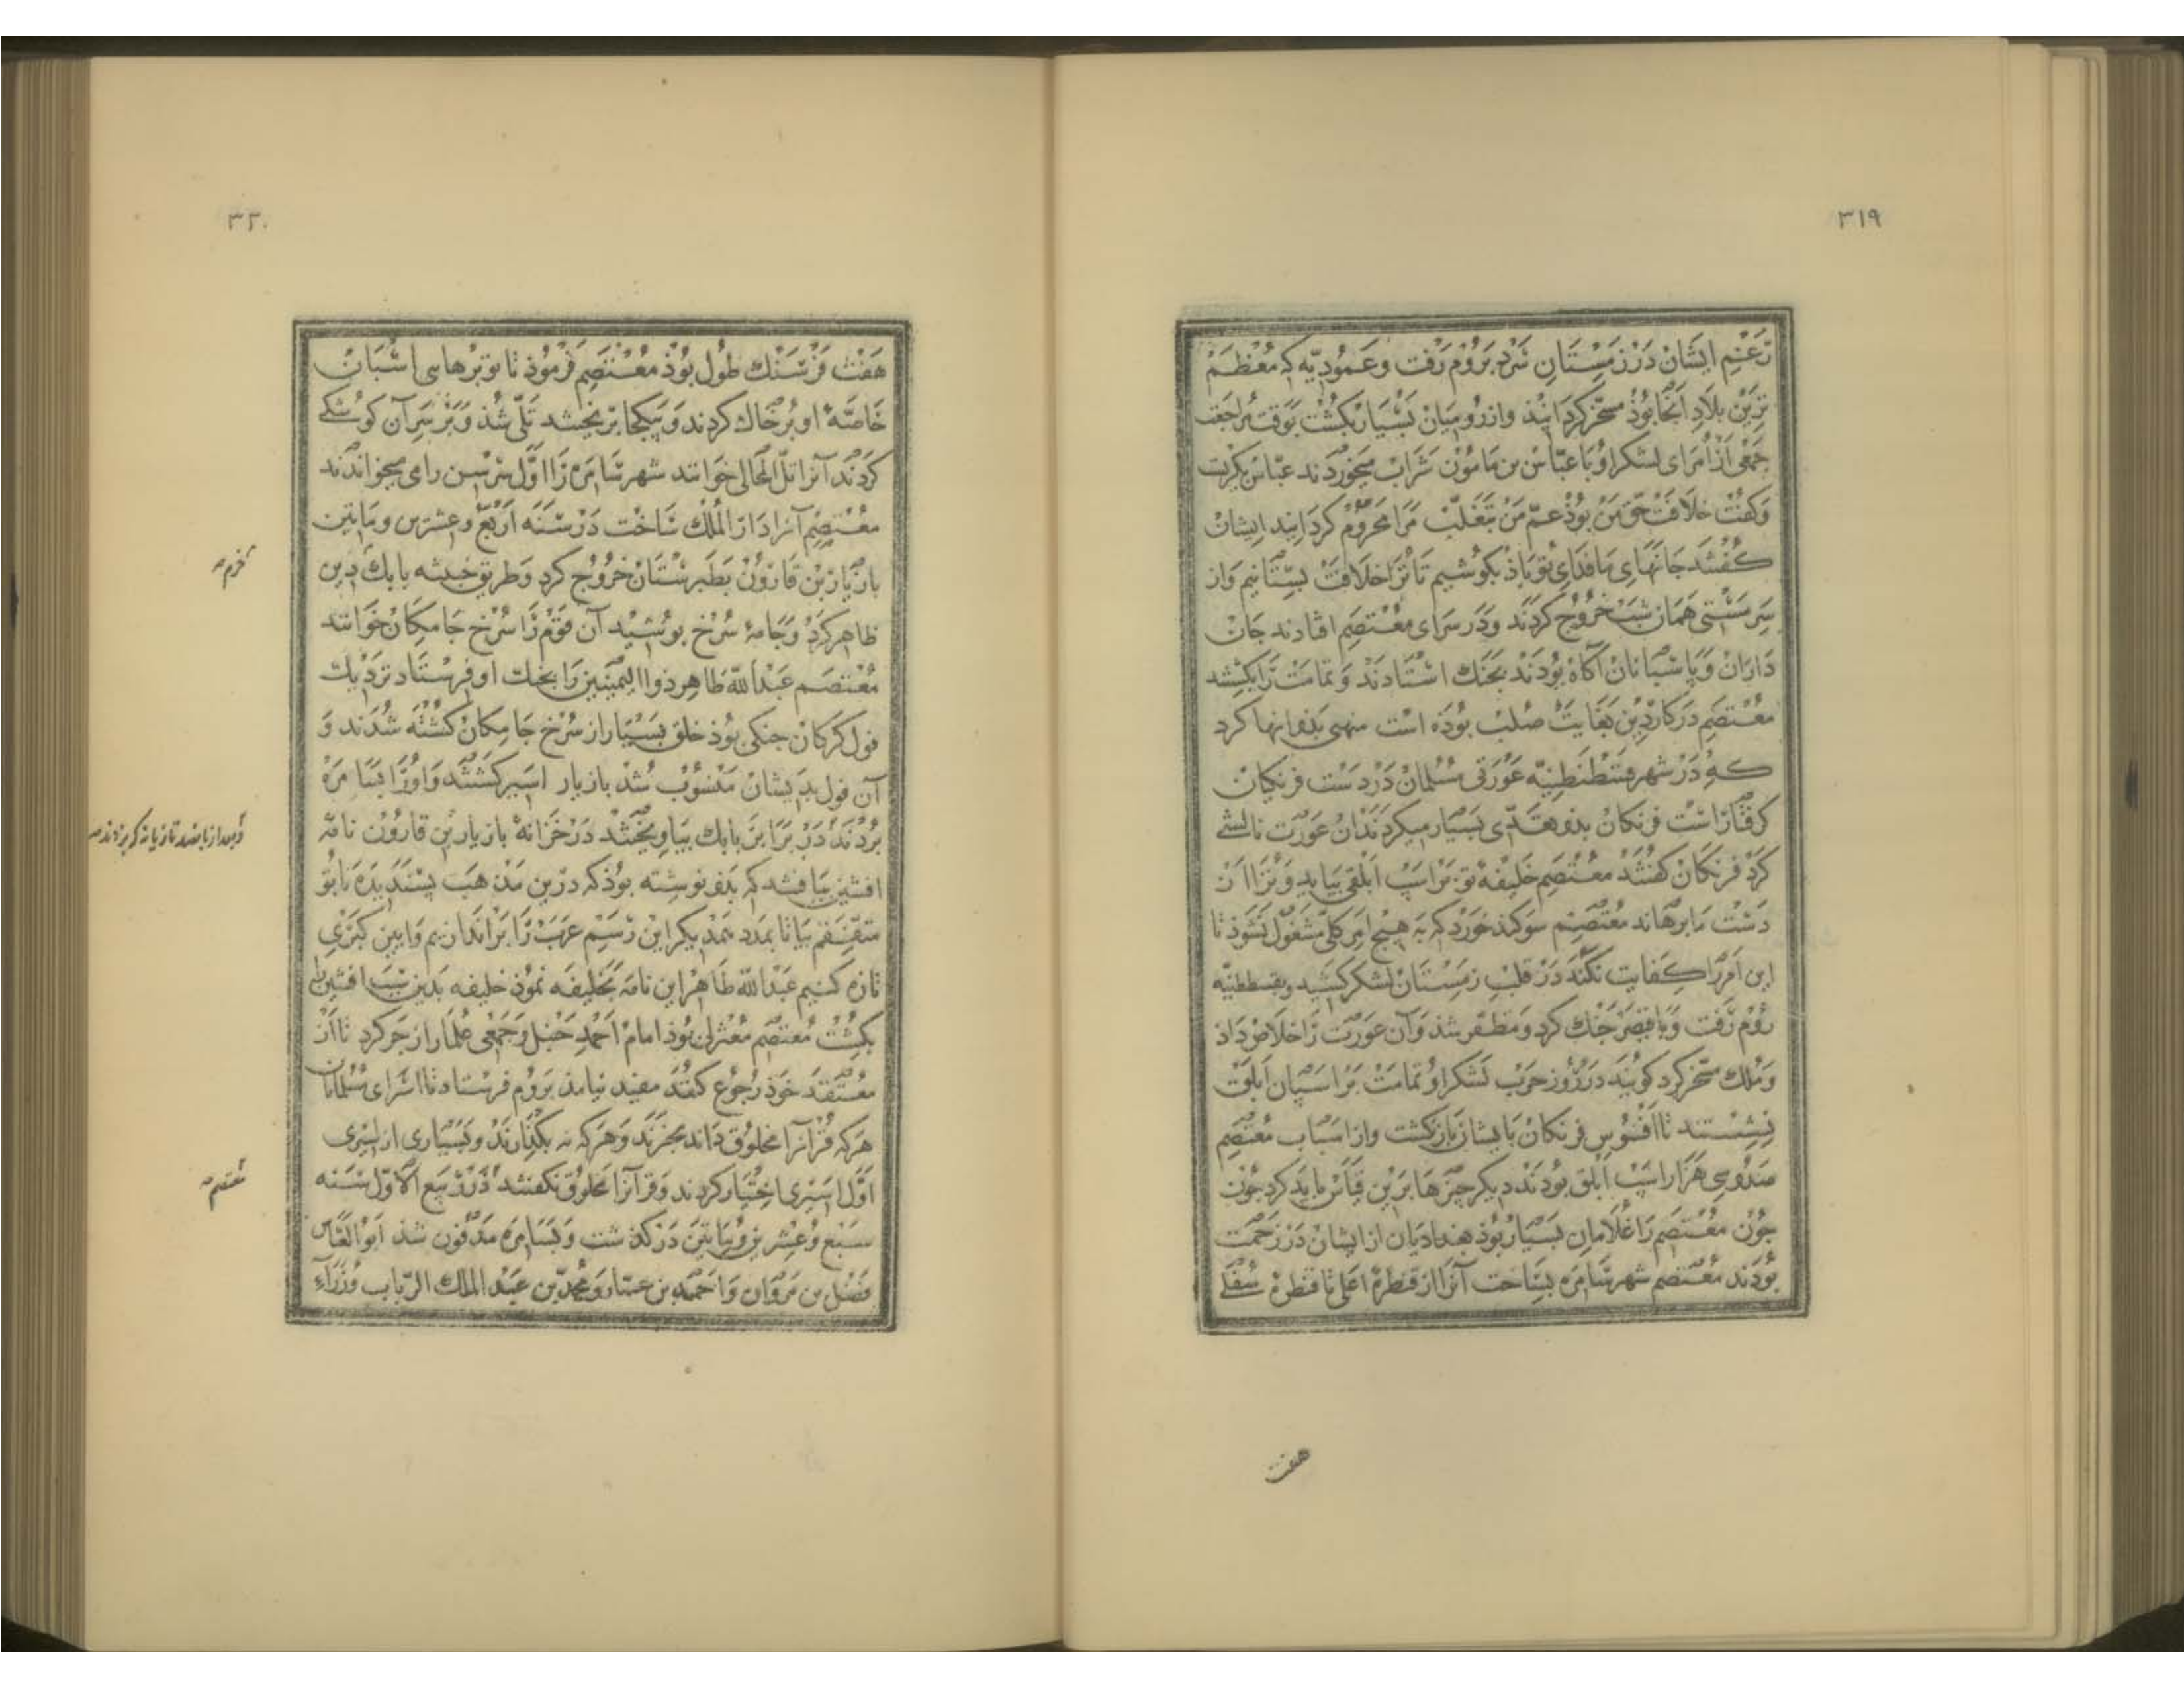 ۳۱۹
رغم ایشان در زمستان سرد بروم رفت و عموریه که معظم
ترین بلاد آنجا بوذ مسخر کردانید وازرومیان بسیار بکشت بوقت مراجعت
جمعی از امرای لشکر او با عباس بن مامون شراب میخوردند عباس بکریت
وکفت خلافت حق من بوذ عم من بتغلب مرا محروم کردانید ایشان
کفتند جانهای ما فدای تو باذ بکوشیم تا ترا خلافت بستانیم واز
سر مستی همان شب خروج کردند ودر سرای معتصم افتادند جان
داران وپاسبانان آکاه بودند بجنك استادند وتمامت را بکشتند
معتصم در کار دین بغایت صلب بوذه است منهی بذو انها کرد
که در شهر قسطنطنیه عورتی مسلمان در دست فرنکیان
کرفتار است فرنکان بذو تعدی بسیار میکردند آن عورت نالشی
کرد فرنکان کفتند معتصم خلیفه تو بر اسپ ابلق بیاید وترا از
دست ما برهاند معتصم سوکند خورد که به هیچ امر کلی مشغول نشوذ تا
این امر را کفایت نکند در قلب زمستان لشکر کشید وبقسطنطنیه
روم رفت وبا قیصر جنك کرد ومظفر شذ وآن عورت را خلاص داذ
وملك مسخر کرد کویند در روز حرب لشکر او تمامت بر اسپان ابلق
نشستند تا افسوس فرنکان بایشان بازکشت واز اسباب معتصم
صدوسی هزار اسپ ابلق بودند دیکر چیزها برین قیاس باید کرد چون
چون معتصم را غلامان بسیار بوذ بغدادیان از ایشان در زحمت
بودند معتصم شهر سامره بساخت آنرا از قنطره اعلی تا قنطره سفلی
هفت
۳۲۰
هفت فرسنك طول بوذ معتصم فرموذ تا توبرهای اسبان
خاصهٔ او پر خاك کردند وبیکجا بر یختند تلی شذ وبر سر آن کوشکی
کردند آنرا تل المخالی خوانند شهر سامره را اول سرمن رای میخواندند
معتصم آنرا دار الملك ساخت در سنه اربع وعشرین ومایتین
بازیار بن قارون بطبرستان خروج کرد وطریق خبیثه بابك دین
خرم
ظاهر کرد وجامهٔ سرخ بوشید آن قوم را سرخ جامکان خوانند
معتصم عبد الله طاهر ذو الیمینین را بجنك او فرستاد نزدیك
فول کرکان جنکی بوذ خلق بسیار از سرخ جامکان کشته شدند و
آن فول بدیشان منسوب شذ بازیار اسیر کشت واورا بسامره
بردند در برابر بابك بیاویختند در خزانهٔ بازیار بن قارون نامهٔ
وبعد از پانصد تازیانه که بزدند
افشین بیافتند که بذو نوشته بوذ که درین مذهب پسندیده با تو
متفقم بیا تا بمدد همدیکر این رسم عرب را براندازیم وایین کبری
تازه کنیم عبد الله طاهر این نامه بخلیفه نموذ خلیفه بدین سبب افشین را
بکشت معتصم معتزلی بوذ امام احمد حنبل وجمعی علما را زجر کرد تا از
معتقد خوذ رجوع کنند مفید نیامذ بروم فرستاد تا اسرای مسلمانان
هر که قرآنرا مخلوق داند بخرند وهر که نه بکذارند وبسیاری از اسیری
اول اسیری اختیار کردند وقرآنرا مخلوق نکفتند در ربیع الاول سنه
معتصم
سبع وعشرین ومایتین درکذشت وبسامره مدفون شذ ابو العباس
فضل بن مروان واحمد بن عمار ومحمد بن عبد الملك الزیات وزراء